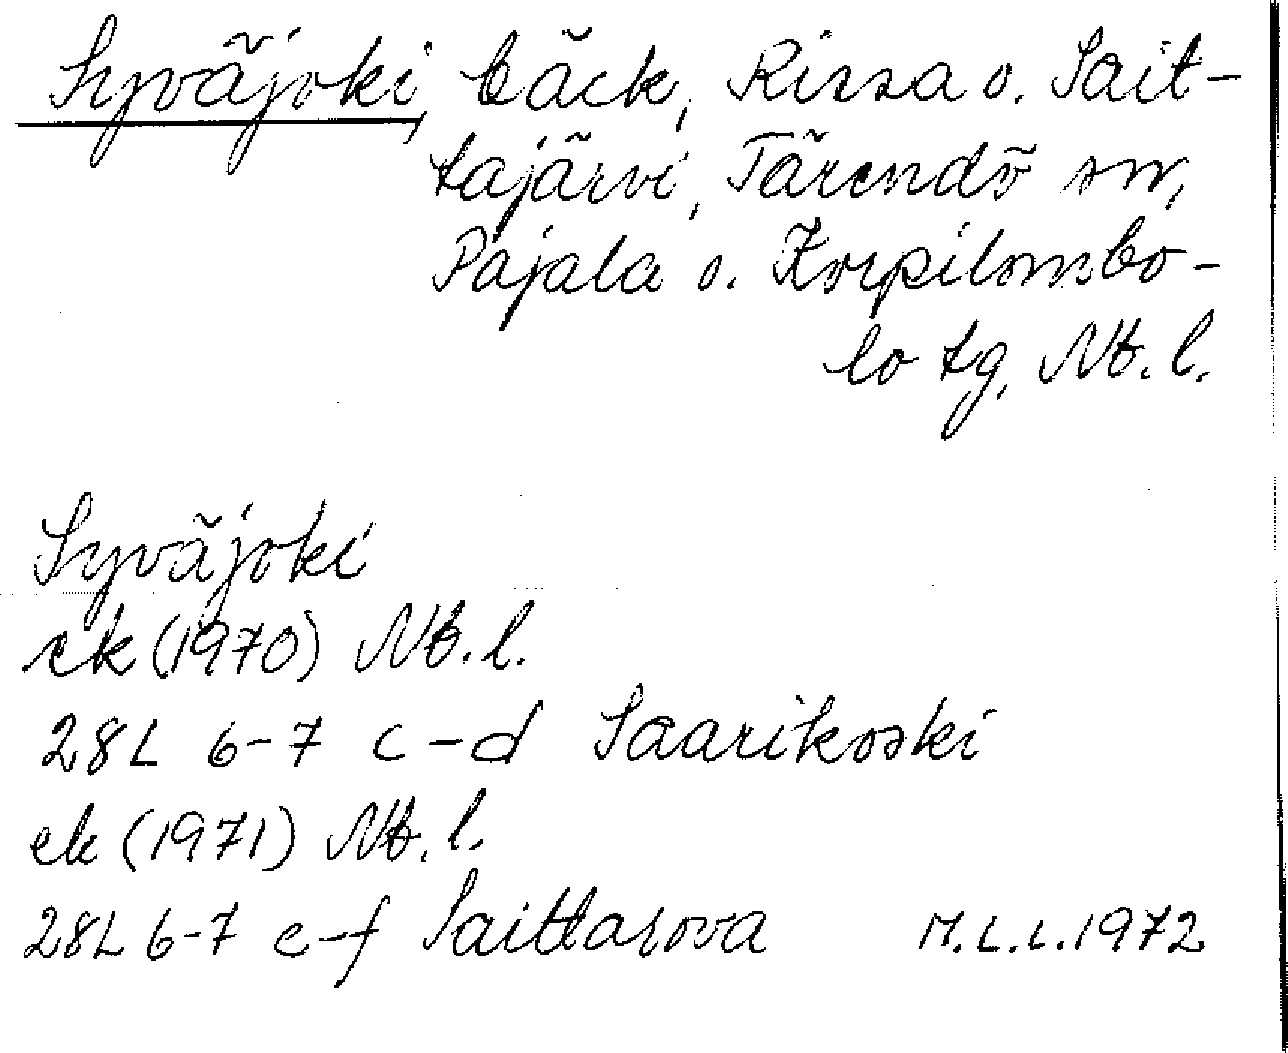 Syväjoki, bäck, Rissa o. Sait-
tajärvi, Tärendö sn,
Pajala o. Korpilombo-
lo tg, Nb. l.
Syväjoki
ek (1970) Nb. l.
28L 6-7 c-d Saarikoski
ek (1971) Nb. l.
28L 6-7 e-f Saittarova M.L.L. 1972